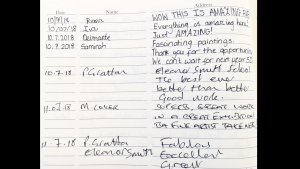 Date Name Address
10/7/18 Riara WOW THIS IS AMAZING
10/07/18 Iva Everything is amazing here!
10.7.2018 Deimante Just AMAZING!
10.7.2018 Samirah Fascinating paintings.
Thank you for the opportunity
We can't wait for next year
10.7.18 P Grattan Eleanor Smith School
The best ever
better than better
Good work.
11.07.18 M SUPER, GREAT WORK
IN A GREAT EXHIBITION
11.7.18 P Grattan Fablous
Eleanor Smith Excellent
Great